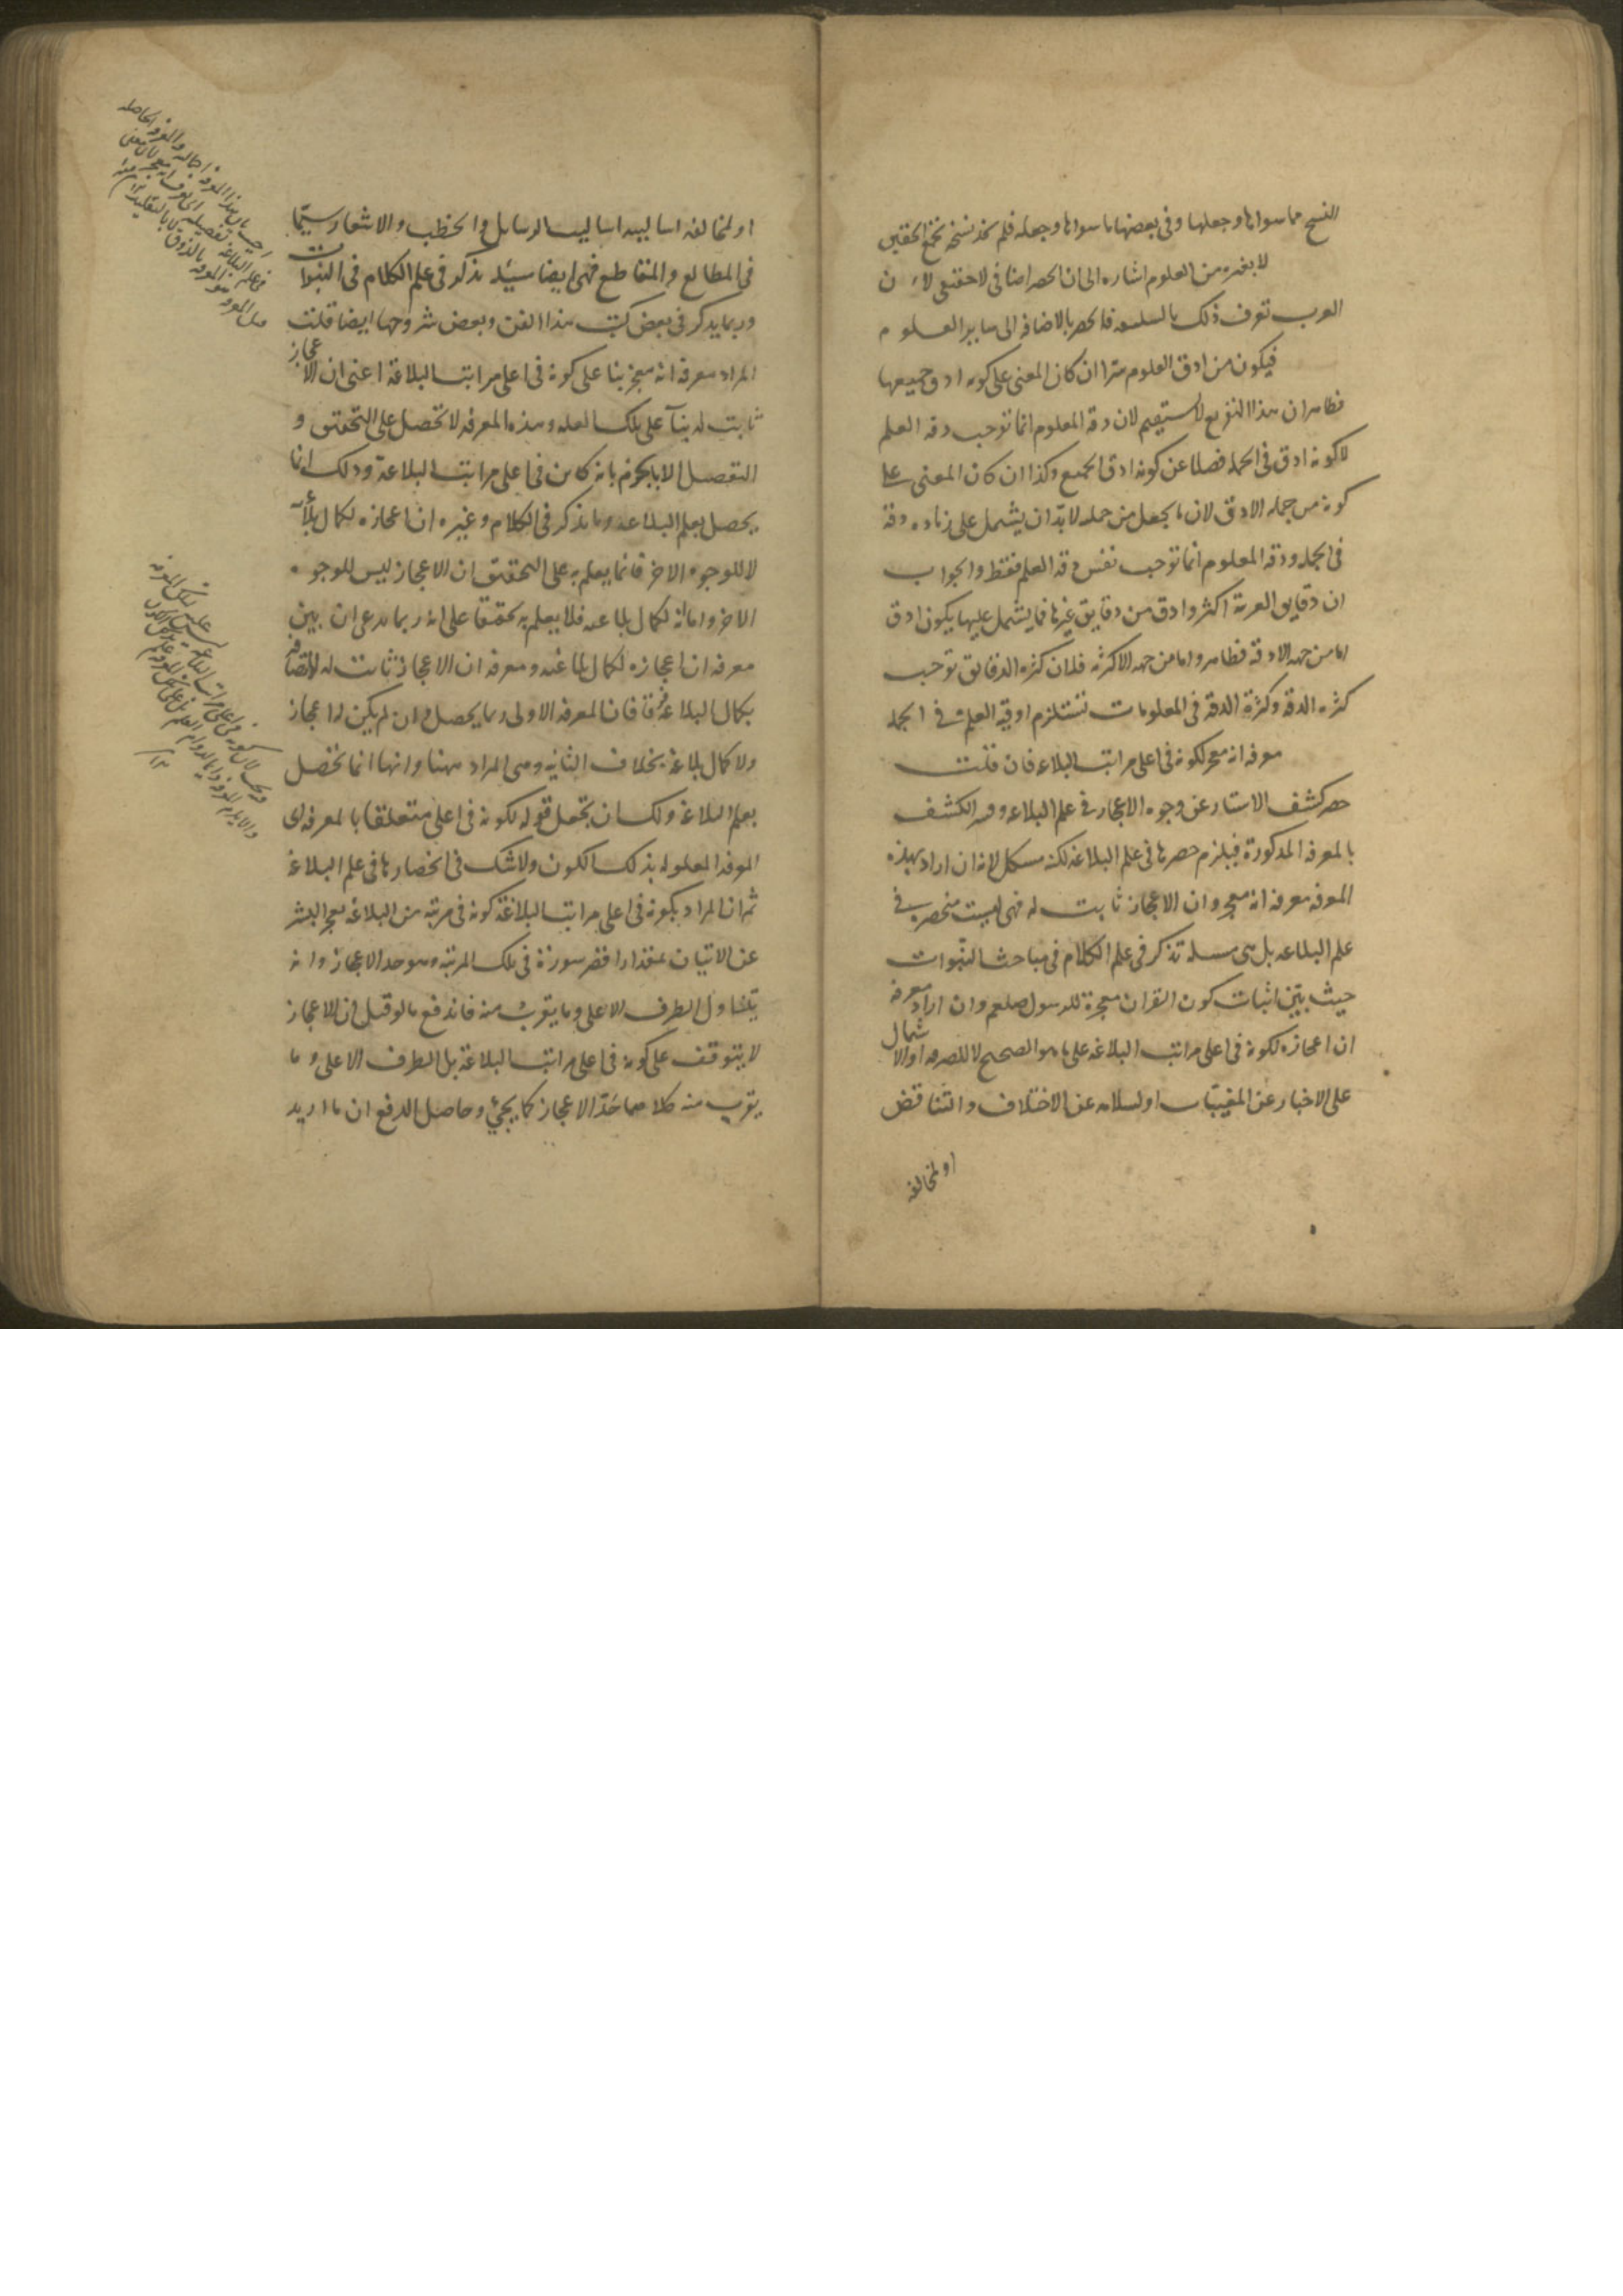 النسخ مما سواها وجعلها وفي بعضها ما سواها وجعله فلم نسخة
لا بغيره من العلوم اشارة الى ان الحصر اضافي لا حقيقي لان
العرب تعرف ذلك بالسليقة فالحصر بالاضافه الى ساير العلوم
فيكون من ادق العلوم سرا ان كان المعنى على كونه ادق جميعها
فظاهر ان هذا التفريع لا يستقيم لان دقه المعلوم انما توجب دقه العلم
لا كونه ادق في الجمله فضلا عن كونه ادق الجميع وكذا ان كان المعنى على
كونه من جمله الادق لان ما يجعل من جمله لا بدّ ان يشتمل على زياده دقة
في الجمله ودقه المعلوم انما توجب نفس دقه العلم فقط والجواب
ان دقايق العربية اكثر وادق من دقايق غيرها فما يشتمل عليها يكون ادق
اما من جهه الادقية فظاهر واما من جهه الاكثريه فلان كثره الدقايق توجب
كثره الدقة وكثرة الدقة في المعلومات تستلزم ادقية العلم في الجمله
معرفه انه معجز لكونه في اعلى مراتب البلاغه فان قلت
حصر كشف الاستار عن وجوه الاعجاز في علم البلاغه وفسر الكشف
بالمعرفه المذكورة فيلزم حصرها في علم البلاغه لكنه مشكل لانه ان اراد بهذه
المعرفه معرفه انه معجز وان الاعجاز ثابت له فهي ليست منحصره في
علم البلاغه بل هي مسئلة تذكر في علم الكلام في مباحث النبّوات
حيث يبيّن اثبات كون القران معجزة للرسول صلعم وان اراد معرفه
ان اعجازه لكونه في اعلى مراتب البلاغه على ما هو الصحيح لا للصرفه او لاشتماله
على الاخبار عن المغيبّات او لسلامته عن الاختلاف والتناقض
او لمخالفه
او لمخالفه اساليبه اساليب الرسايل والخطب والاشعار سيّما
في المطالع والمقاطع فهي ايضا مسئله تذكر في علم الكلام في النبوات
وربما يذكر في بعض كتب هذا الفن وبعض شروحها ايضا قلت
المراد معرفه انه معجز بناء على كونه في اعلى مراتب البلاغة اعني ان الاعجاز
ثابت له بناء على تلك العله وهذه المعرفه لا تحصل على التحقق و
التفصيل الا بالجزم بانه كاين في اعلى مراتب البلاغة وذلك انما
يحصل بعلم البلاغه وما يذكر في الكلام وغيره ان اعجازه لكمال بلاغته
لا للوجوه الاخر فانما يعلم به على التحقيق ان الاعجاز ليس للوجوه
الاخر واما انه لكمال بلاغته فلا يعلم به تحقيقا على انه ربما يدعى ان بين
معرفه ان اعجازه لكمال بلاغته ومعرفه ان الاعجاز ثابت له لاتصافه
بكمال البلاغة فرقا فان المعرفه الاولى ربما يحصل وان لم يكن له اعجاز
ولا كمال بلاغة بخلاف الثانيه وهي المراد ههنا وانها انما تحصل
بعلم البلاغة ولك ان تجعل قوله لكونه في اعلى متعلقا بالمعرفه اى
المعرفه المعلوله بذلك الكون ولا شك في انحصارها في علم البلاغة
ثم ان المراد بكونه في اعلى مراتب البلاغة كونه في مرتبة من البلاغة يعجز البشر
عن الاتيان بمقدار اقصر سورة في تلك المرتبة وهو حد الاعجاز وانه
يتناول الطرف الاعلى وما يقرب منه فاندفع ما لو قيل ان الاعجاز
لا يتوقف على كونه في اعلى مراتب البلاغة بل الطرف الاعلى وما
يقرب منه كلاهما حدّ الاعجاز كما يجيء وحاصل الدفع ان ما اريد